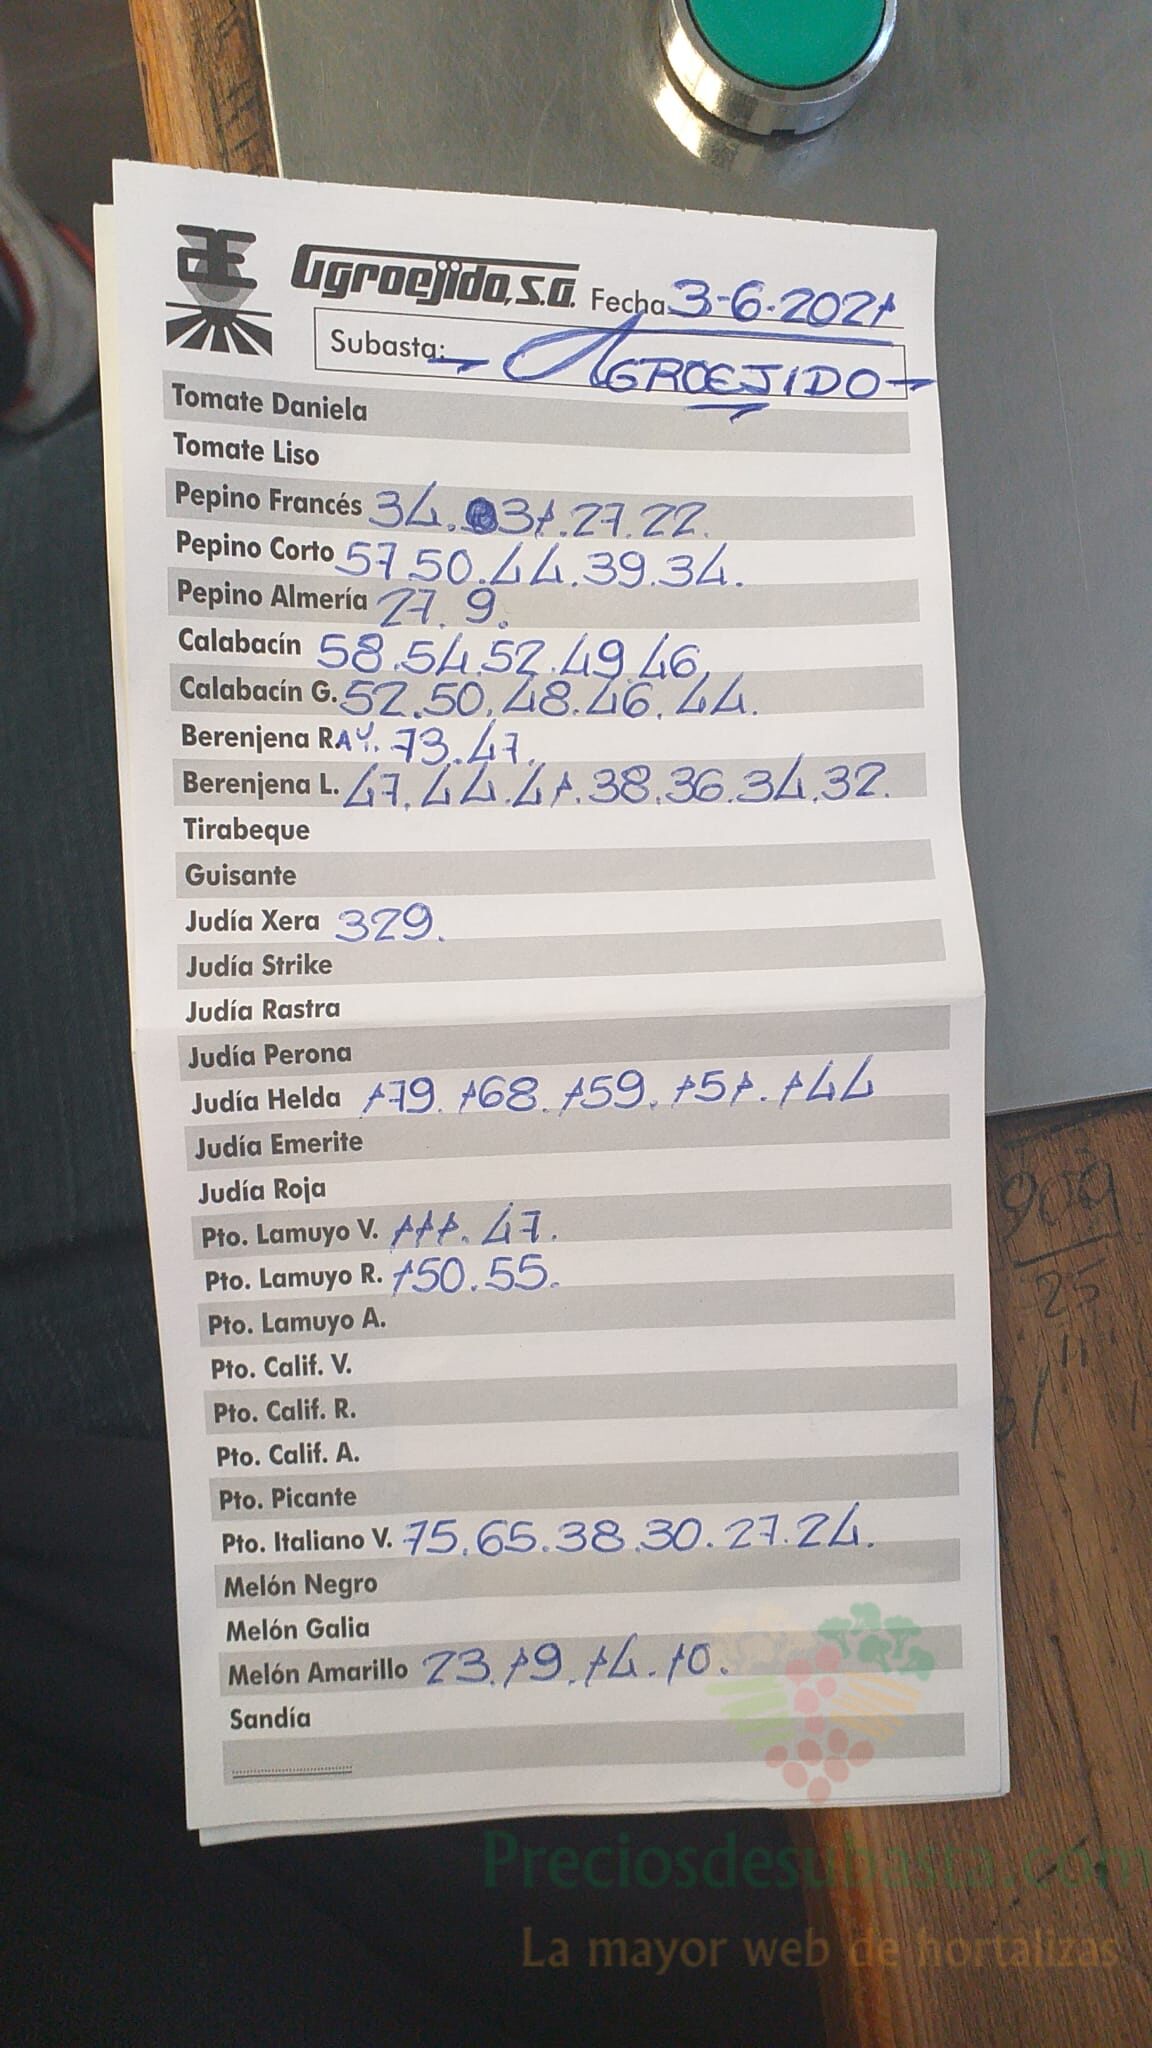 Agroejido, S.A. Fecha 3-6-2021
Subasta: AGROEJIDO
Tomate Daniela
Tomate Liso
Pepino Francés 34. 31. 27. 22.
Pepino Corto 57 50. 44. 39. 34.
Pepino Almería 27. 9.
Calabacín 58. 54. 52. 49. 46.
Calabacín G. 52. 50. 48. 46. 44.
Berenjena RAY. 73. 47.
Berenjena L. 47. 44. 41. 38. 36. 34. 32.
Tirabeque
Guisante
Judía Xera 329.
Judía Strike
Judía Rastra
Judía Perona
Judía Helda 179. 168. 159. 151. 144
Judía Emerite
Judía Roja
Pto. Lamuyo V. 111. 47.
Pto. Lamuyo R. 150. 55.
Pto. Lamuyo A.
Pto. Calif. V.
Pto. Calif. R.
Pto. Calif. A.
Pto. Picante
Pto. Italiano V. 75. 65. 38. 30. 27. 24.
Melón Negro
Melón Galia
Melón Amarillo 23. 19. 14. 10.
Sandía
Preciosdesubasta.com
La mayor web de hortalizas
909
25